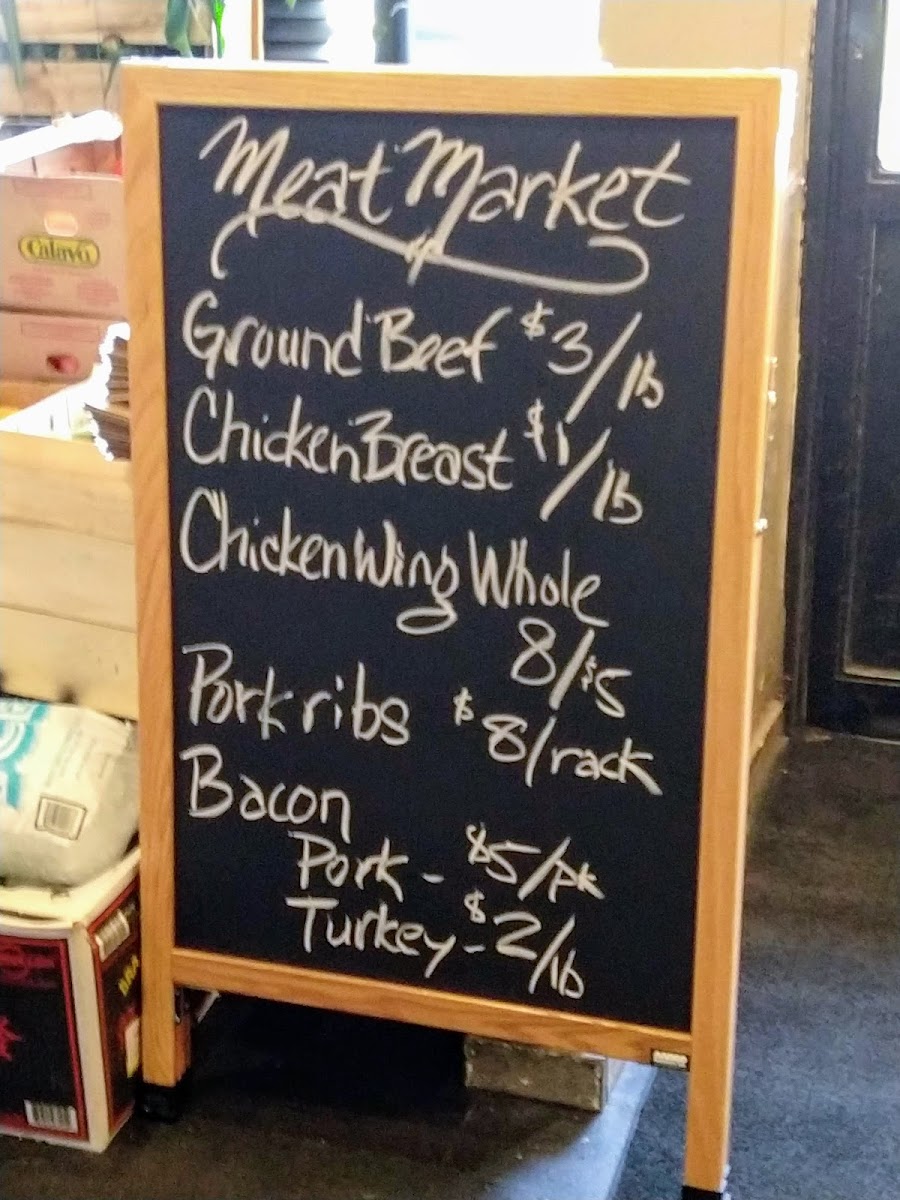 Meat Market
Ground Beef $3/lb
Chicken Breast $1/lb
Chicken Wing Whole
8/$5
Pork ribs $8/rack
Bacon
Pork - $5/pk
Turkey - $2/lb
Calavo